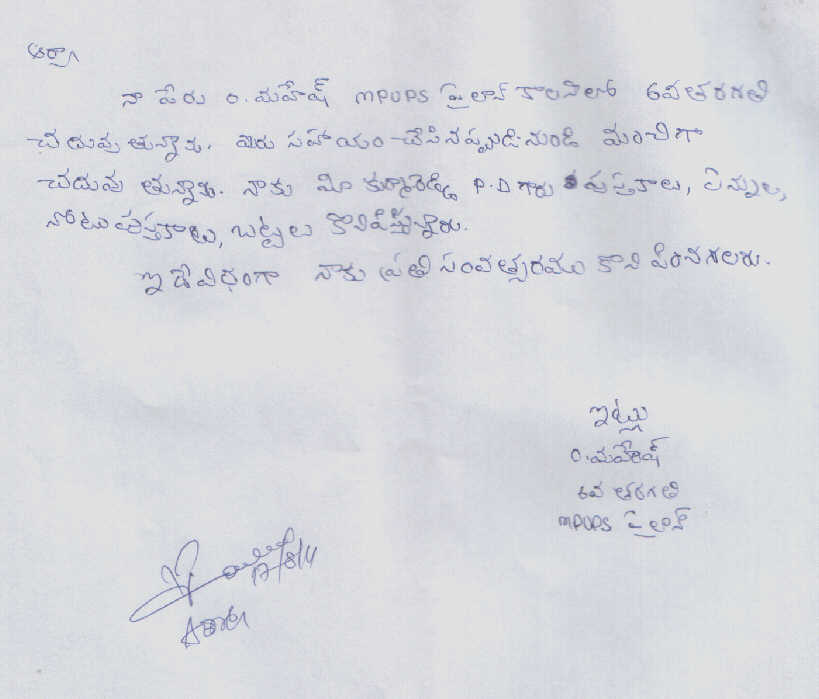 ఆర్యా
నా పేరు ఠ. మహేష్ MPUPS పైలాన్ కాలనిలో 6వ తరగతి
చదువు తున్నాను. మీరు సహాయం చేసినప్పుడి నుండి మంచిగా
చదువు తున్నాను. నాకు మీ కుర్మారెడ్డి P.D గారు పుస్తకాలు, పెన్నుల,
నోటు పుస్తకాలు, బట్టలు కొనిపిస్తున్నారు.
ఇదేవిధంగా నాకు ప్రతి సంవత్సరము కొని పించగలరు.
ఇట్లు
ఠ. మహేష్
6వ తరగతి
MPUPS పైలాన్
17/8/11